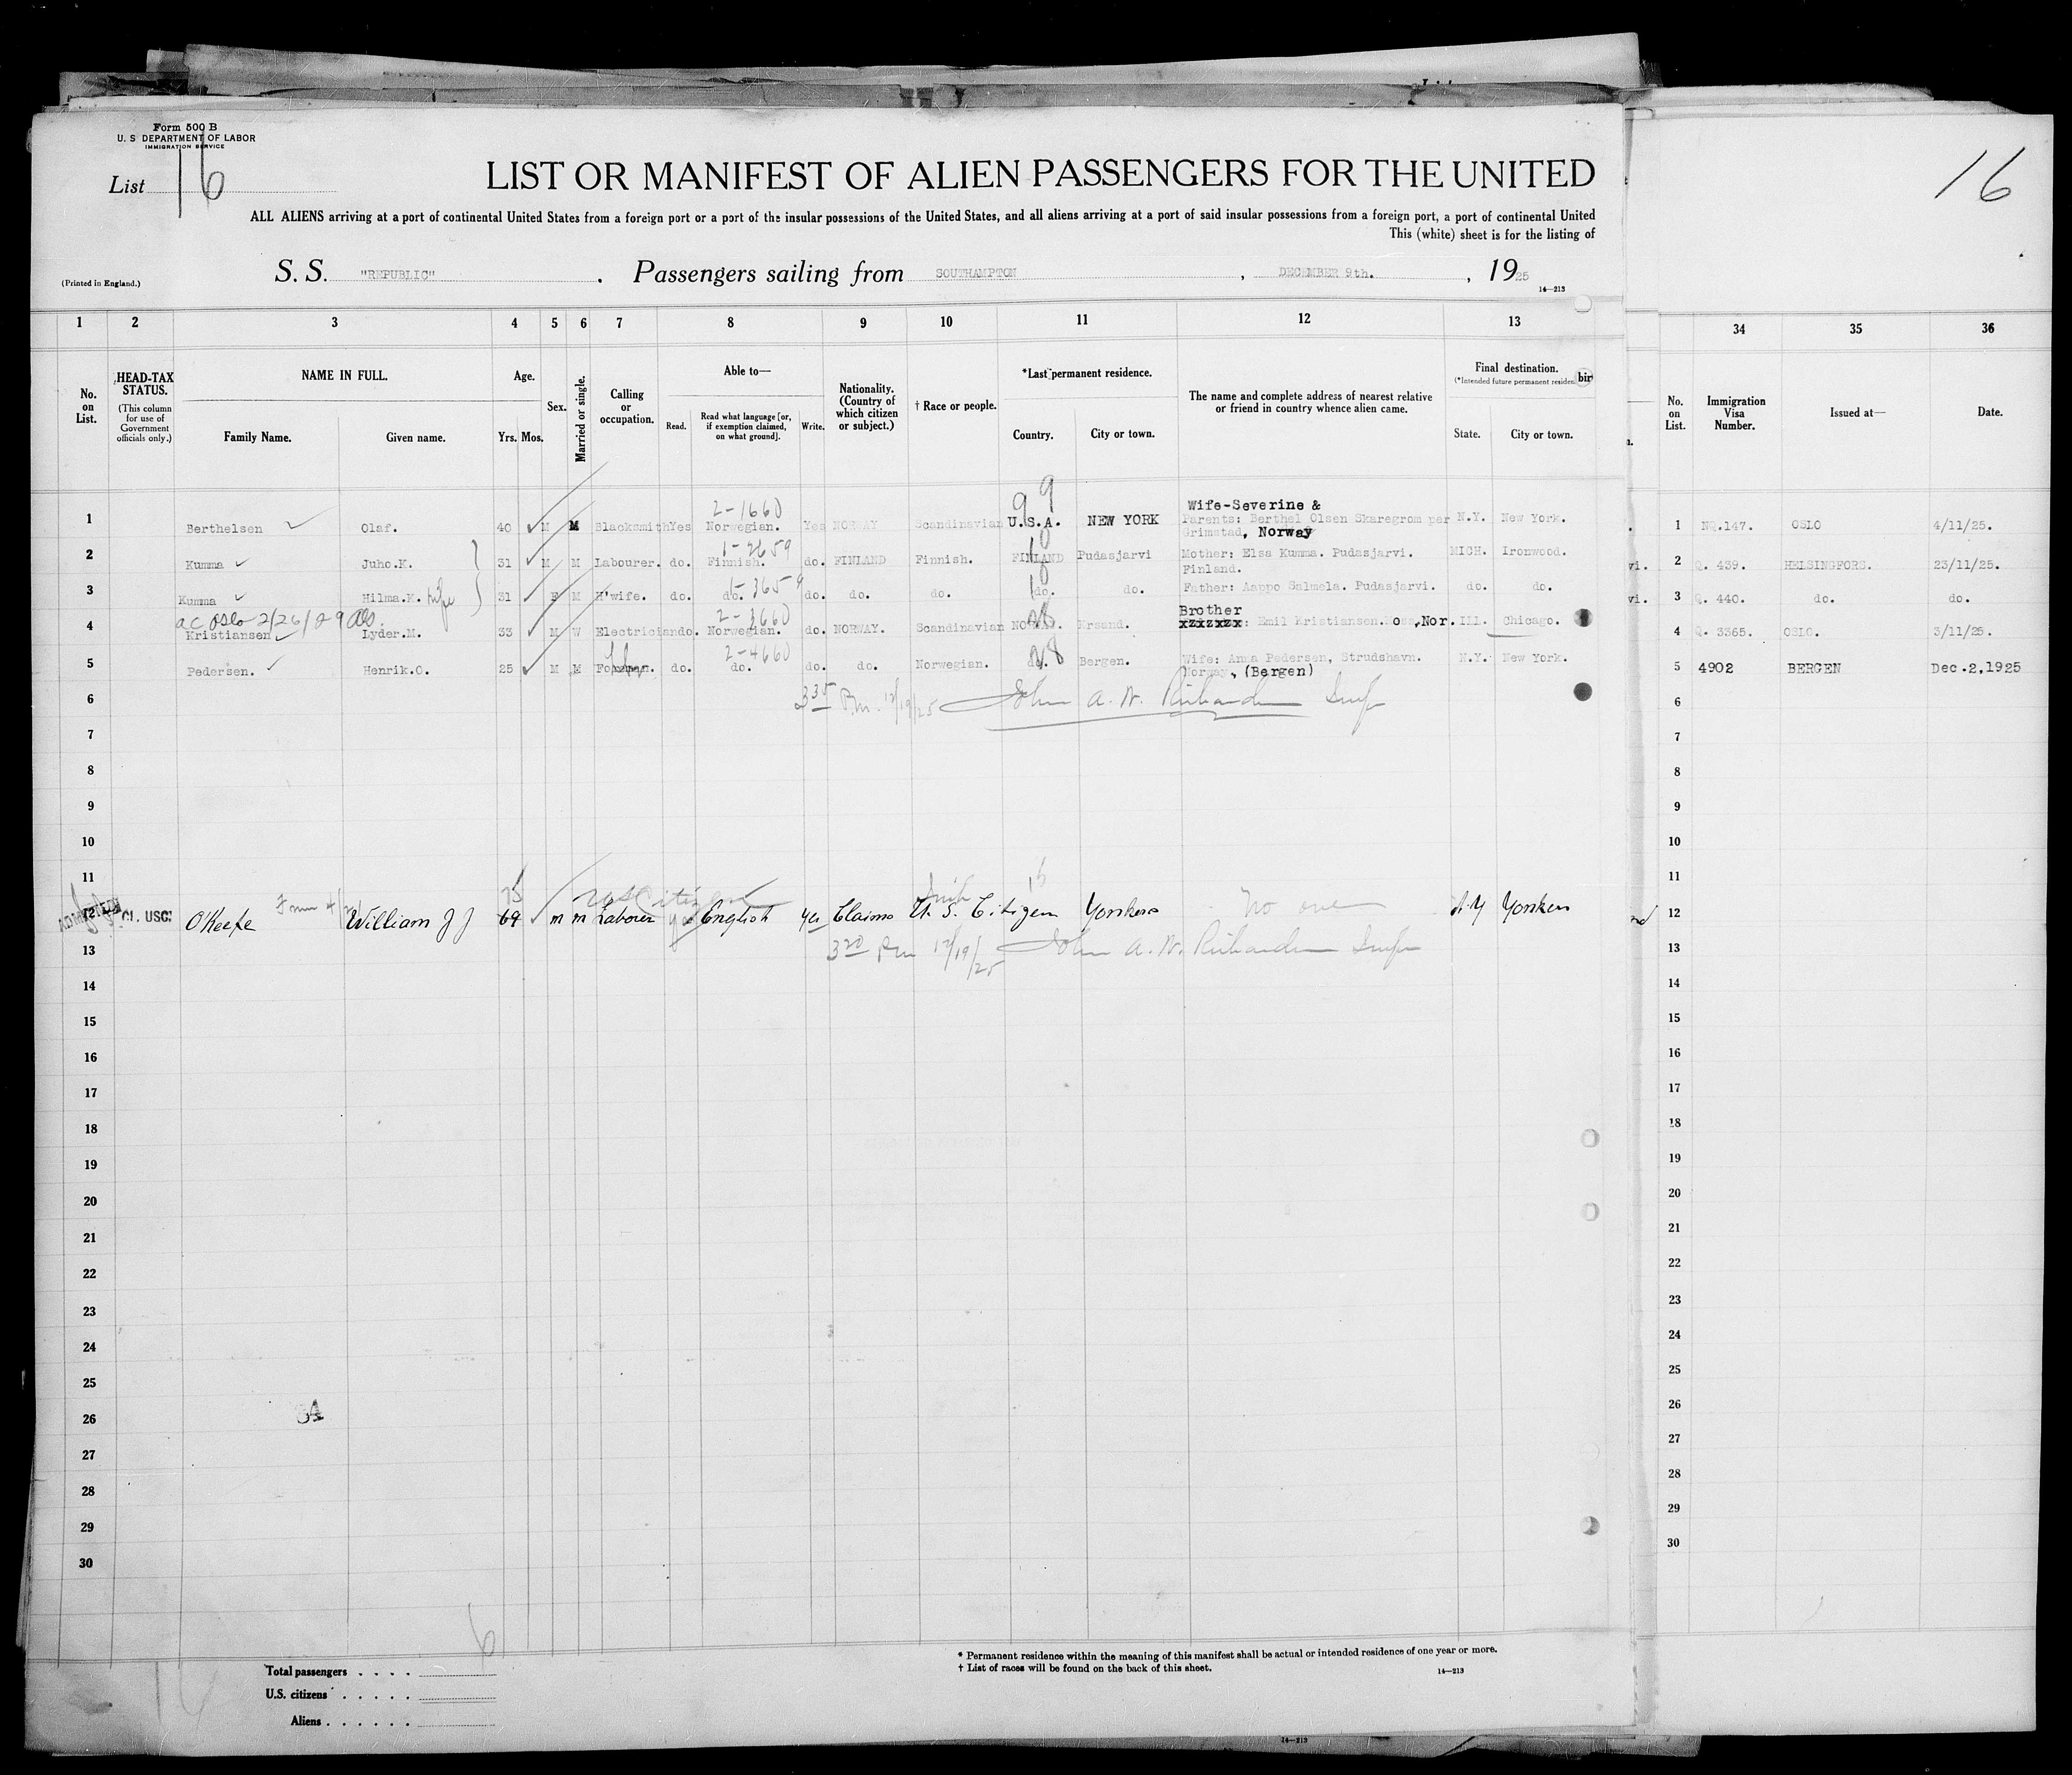 Form 500 B
U. S. DEPARTMENT OF LABOR
IMMIGRATION SERVICE
List 16
16
LIST OR MANIFEST OF ALIEN PASSENGERS FOR THE UNITED
ALL ALIENS arriving at a port of continental United States from a foreign port or a port of the insular possessions of the United States, and all aliens arriving at a port of said insular possessions from a foreign port, a port of continental United
This (white) sheet is for the listing of
(Printed in England.)
S. S. "REPUBLIC". Passengers sailing from SOUTHAMPTON, DECEMBER 9th., 1925
14—213
1 2 3 4 5 6 7 8 9 10 11 12 13 34 35 36
No. on List.
HEAD-TAX STATUS.
(This column for use of Government officials only.)
NAME IN FULL.
Family Name. Given name.
Age.
Yrs. Mos.
Sex.
Married or single.
Calling or occupation.
Able to—
Read. Read what language [or, if exemption claimed, on what ground]. Write.
Nationality. (Country of which citizen or subject.)
† Race or people.
*Last permanent residence.
Country. City or town.
The name and complete address of nearest relative or friend in country whence alien came.
Final destination.
(*Intended future permanent residen
bir
State. City or town.
No. on List.
Immigration Visa Number.
Issued at—
Date.
2-1660 9 9 Wife-Severine &
1 Berthelsen Olaf. 40 M M Blacksmith Yes Norwegian. Yes NORWAY Scandinavian U.S.A. NEW YORK Parents: Berthel Olsen Skaregrom per N.Y. New York. 1 NQ.147. OSLO 4/11/25.
Grimstad, Norway
1-2659 10
2 Kumma Juho.K. 31 M M Labourer. do. Finnish. do. FINLAND Finnish. FINLAND Pudasjarvi Mother: Elsa Kumma. Pudasjarvi. MICH. Ironwood. vi. 2 Q. 439. HELSINGFORS. 23/11/25.
Finland.
1-3659 10
3 Kumma Hilma.K. wife 31 F M H'wife. do. do. do. do. do. do. do. Father: Aappo Salmela. Pudasjarvi. do. do. vi. 3 Q. 440. do. do.
ac Oslo 2/26/29 2-3660 28 Brother
4 Kristiansen Lyder.M. 33 M W Electrician do. Norwegian. do. NORWAY. Scandinavian NORWAY. Ersand. xzxzxzx: Emil Kristiansen. Moss, Nor. ILL. Chicago. 4 Q. 3365. OSLO. 3/11/25.
2-4660 28
5 Pedersen. Henrik.O. 25 M M do. do. do. do. Norwegian. do. Bergen. Wife: Anna Pedersen, Strudshavn. N.Y. New York. 5 4902 BERGEN Dec.2,1925
Norway, (Bergen)
6 335 P.m. 12/19/25 John A. W. Richardson Insp 6
7 7
8 8
9 9
10 10
11 11
75 US Citizen Irish 16
12 ADMITTED CL. USC. O'Keefe William J J 69 m m Labourer yes English yes Claims U. S. Citizen Yonkers No one N.Y Yonkers nd 12
13 320 Pm 12/19/25 John A. W. Richardson Insp 13
14 14
15 15
16 16
17 17
18 18
19 19
20 20
21 21
22 22
23 23
24 24
25 25
26 26
27 27
28 28
29 29
30 30
6
Total passengers . . . .
U.S. citizens . . . . .
Aliens . . . . . .
* Permanent residence within the meaning of this manifest shall be actual or intended residence of one year or more.
† List of races will be found on the back of this sheet.
14—213
14—213